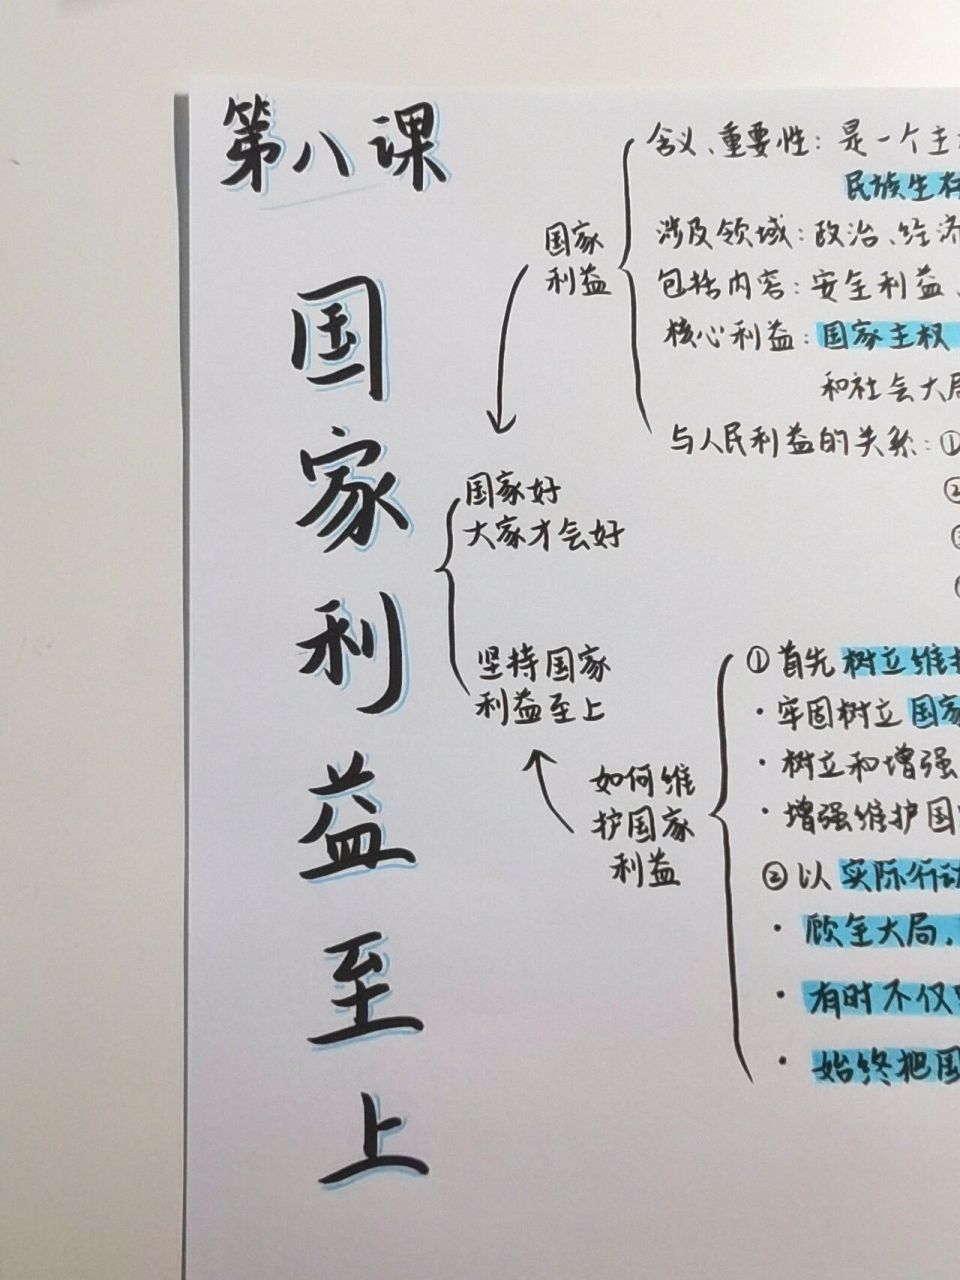 第八课
国家利益至上
国家
利益
含义、重要性：是一个主
民族生存
涉及领域：政治、经济
包括内容：安全利益、
核心利益：国家主权
和社会大局
与人民利益的关系：①
②
国家好
大家才会好
坚持国家
利益至上
如何维
护国家
利益
①首先树立维护
·牢固树立国家
·树立和增强
·增强维护国
②以实际行动
·顾全大局，
·有时不仅
·始终把国